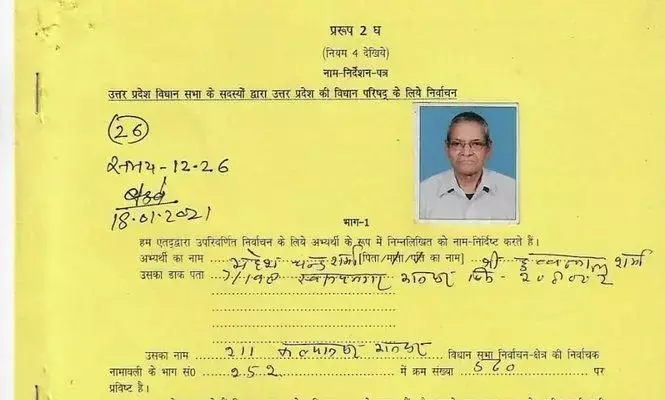 प्ररूप 2 घ
(नियम 4 देखिये)
नाम-निर्देशन-पत्र
उत्तर प्रदेश विधान सभा के सदस्यों द्वारा उत्तर प्रदेश की विधान परिषद् के लिये निर्वाचन
26
समय-12-26
18.01.2021
भाग-1
हम एतद्द्वारा उपरिवर्णित निर्वाचन के लिये अभ्यर्थी के रूप में निम्नलिखित को नाम-निर्दिष्ट करते हैं।
अभ्यर्थी का नाम महेश चन्द्र शर्मा [पिता/माता/पति का नाम] श्री शर्मा
उसका डाक पता
उसका नाम 211 विधान सभा निर्वाचन-क्षेत्र की निर्वाचक
नामावली के भाग सं0 252 में क्रम संख्या 560 पर
प्रविष्ट है।